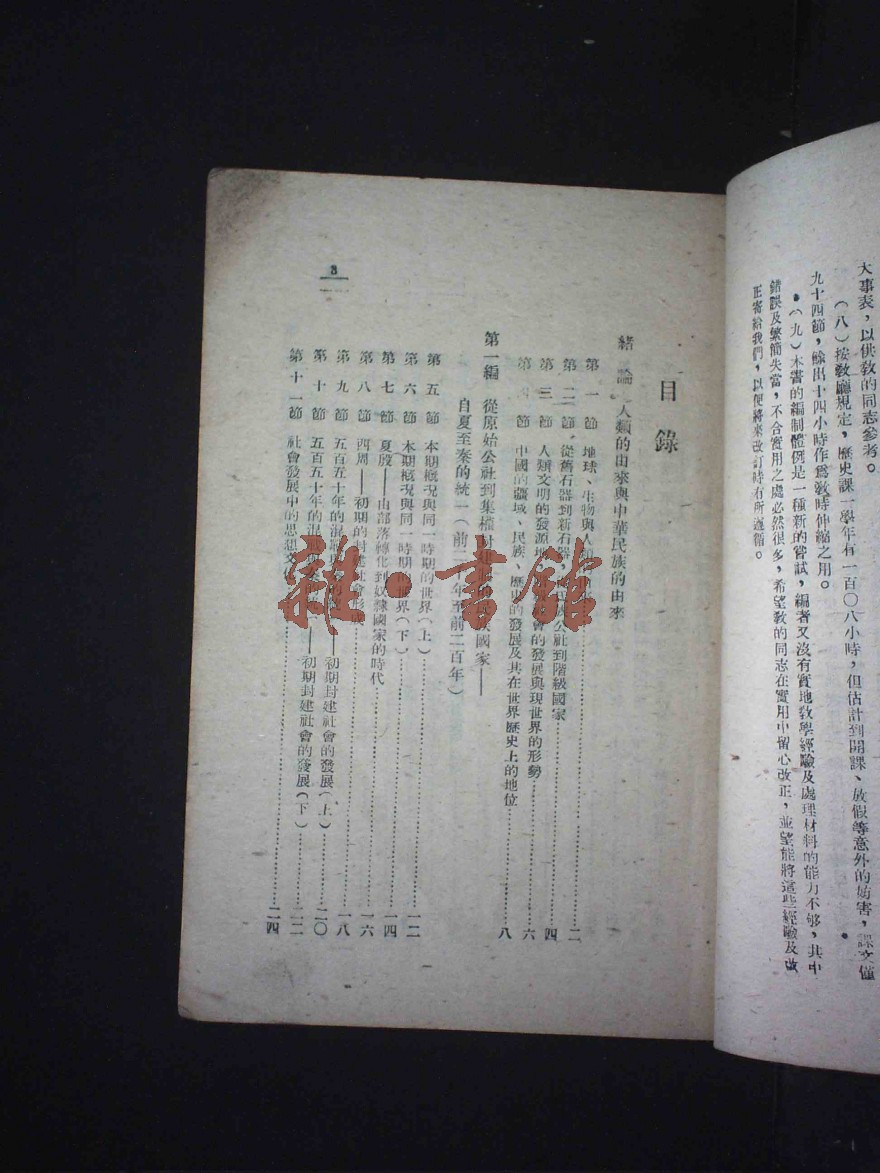 大事表，以供教的同志參考。
（八）按教廳規定，歷史課一學年有一百〇八小時，但估計到開課、放假等意外的妨害，課文僅
九十四節，餘出十四小時作爲教時伸縮之用。
（九）本書的編制體例是一種新的嘗試，編者又沒有實地教學經驗及處理材料的能力不够，其中
錯誤及繁簡失當，不合實用之處必然很多，希望教的同志在實用中留心改正，並望能將這些經驗及改
正寄給我們，以便將來改訂時有所遵循。
目錄
緒論 人類的由來與中華民族的由來
第一節 地球、生物與人類 二
第二節 從舊石器到新石器，公社到階級國家 四
第三節 人類文明的發源地 會的發展與現世界的形勢 六
第四節 中國的疆域、民族、歷史的發展及其在世界歷史上的地位 八
第一編 從原始公社到集權封建 國家——
自夏至秦的統一（前二十年至前二百年）
第五節 本期概況與同一時期的世界（上） 一二
第六節 本期概況與同一時期的世界（下） 一四
第七節 夏殷——由部落轉化到奴隸國家的時代 一六
第八節 西周——初期的封建社會形成 一八
第九節 五百五十年的混戰 ——初期封建社會的發展（上） 二〇
第十節 五百五十年的混戰 ——初期封建社會的發展（下） 二二
第十一節 社會發展中的思想文 二四
3
雜·書館